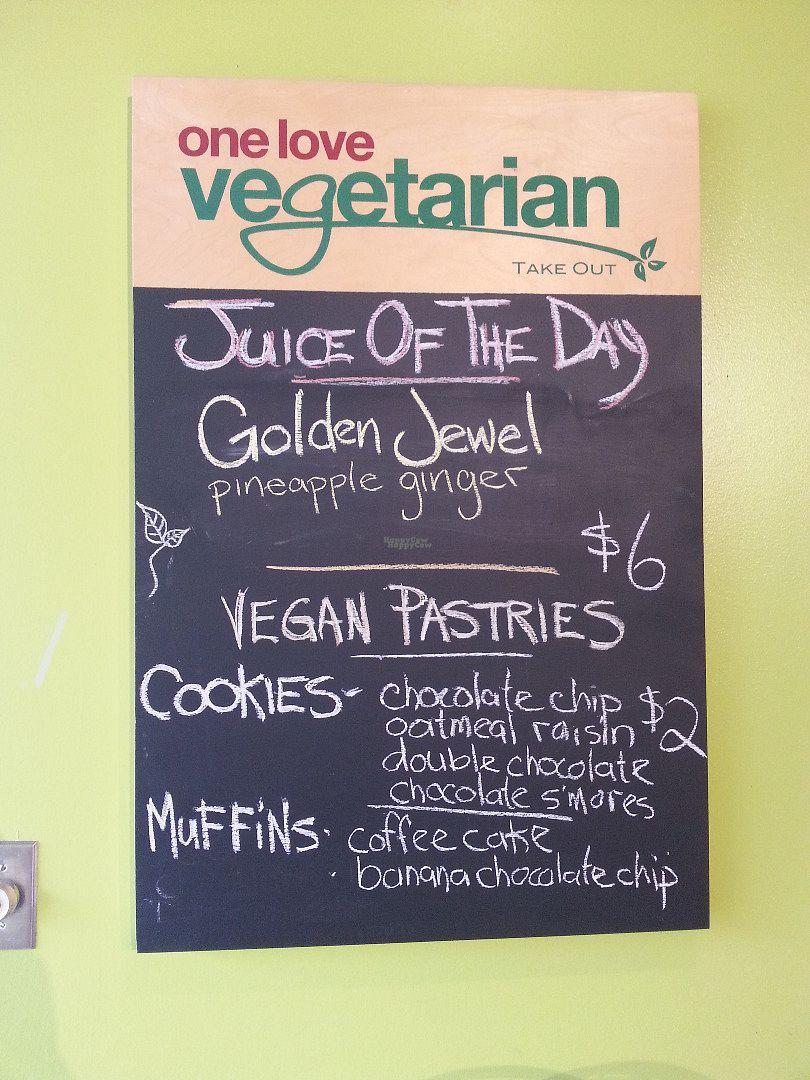 one love
vegetarian
TAKE OUT
JUICE OF THE DAY
Golden Jewel
pineapple ginger
HappyCow
HappyCow
$6
VEGAN PASTRIES
COOKIES - chocolate chip $2
oatmeal raisin
double chocolate
chocolate s'mores
MUFFINS · coffee cake
· banana chocolate chip